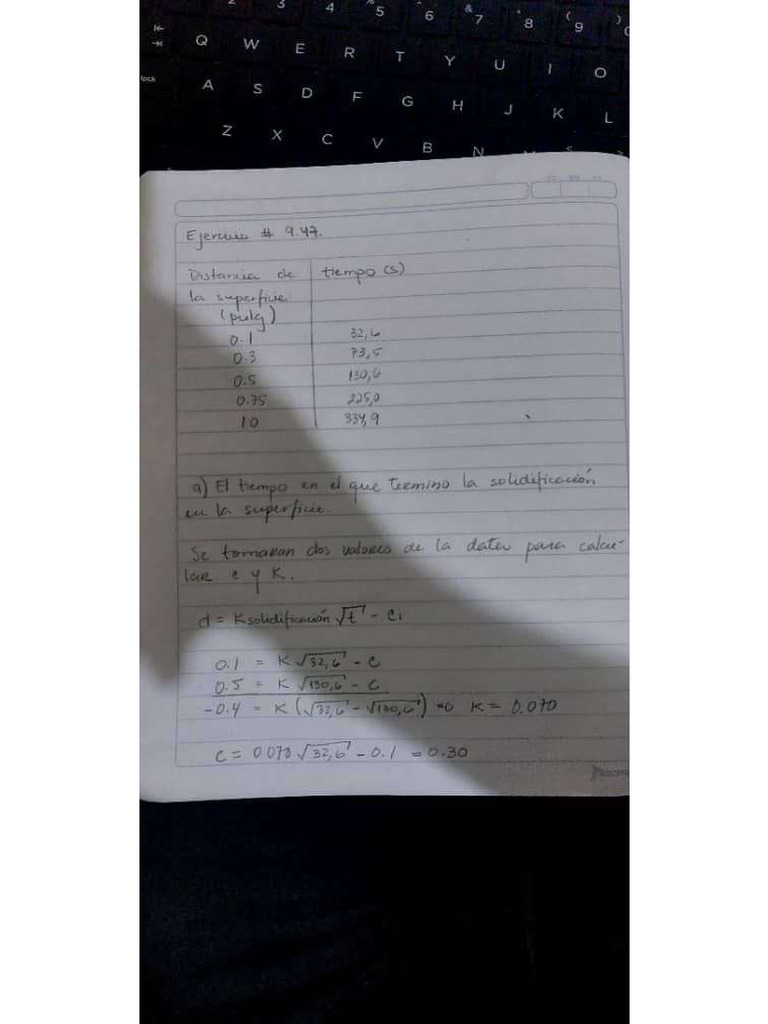 3 4 5 6 & 7 8 ( 9 )
Q W E R T Y U I O
lock A S D F G H J K L
Z X C V B N
Ejercicio # 9.47.
Distancia de tiempo (s)
la superficie
(pulg)
0.1 32,6
0.3 73,5
0.5 130,6
0.75 225,0
1.0 334,9
a) El tiempo en el que termino la solidificación
en la superficie.
Se tomaran dos valores de la data para calcu-
lar c y K.
d = K solidificación √t - C1
0.1 = K √32,6 - C
0.5 = K √130,6 - C
-0.4 = K (√32,6 - √130,6) ⇒ K = 0.070
C = 0.070 √32,6 - 0.1 = 0.30